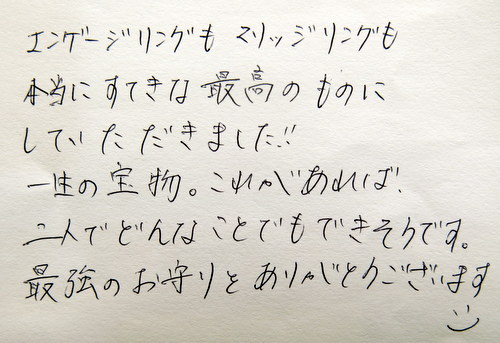 エンゲージリングも マリッジリングも
本当にすてきな最高のものに
していただきました!!
一生の宝物。これがあれば、
二人でどんなことでもできそうです。
最強のお守りをありがとうございます